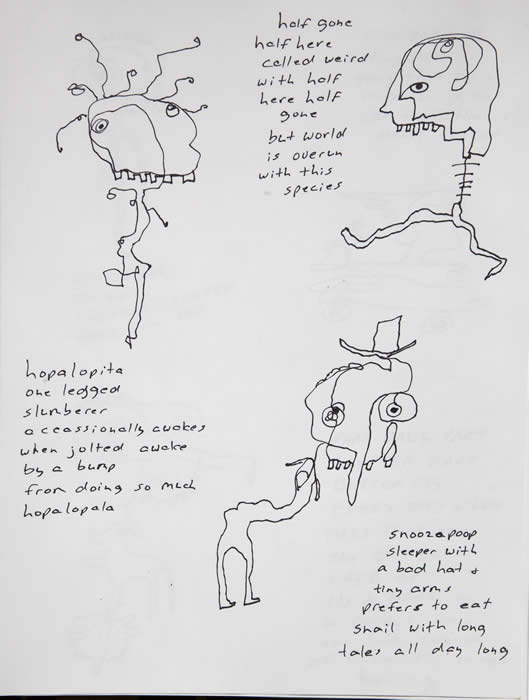 half gone
half here
called weird
with half
here half
gone
but world
is overun
with this
species
hopalopita
one legged
slumberer
accassionally awakes
when jolted awake
by a bump
from doing so much
hopalopala
snoozapoop
sleeper with
a bad hat &
tiny arms
prefers to eat
snail with long
tales all day long